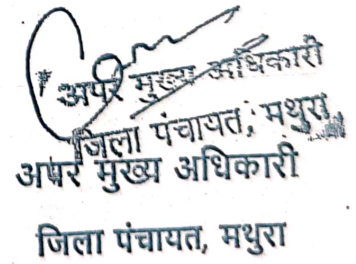 अपर मुख्य अधिकारी
जिला पंचायत, मथुरा
अपर मुख्य अधिकारी
जिला पंचायत, मथुरा